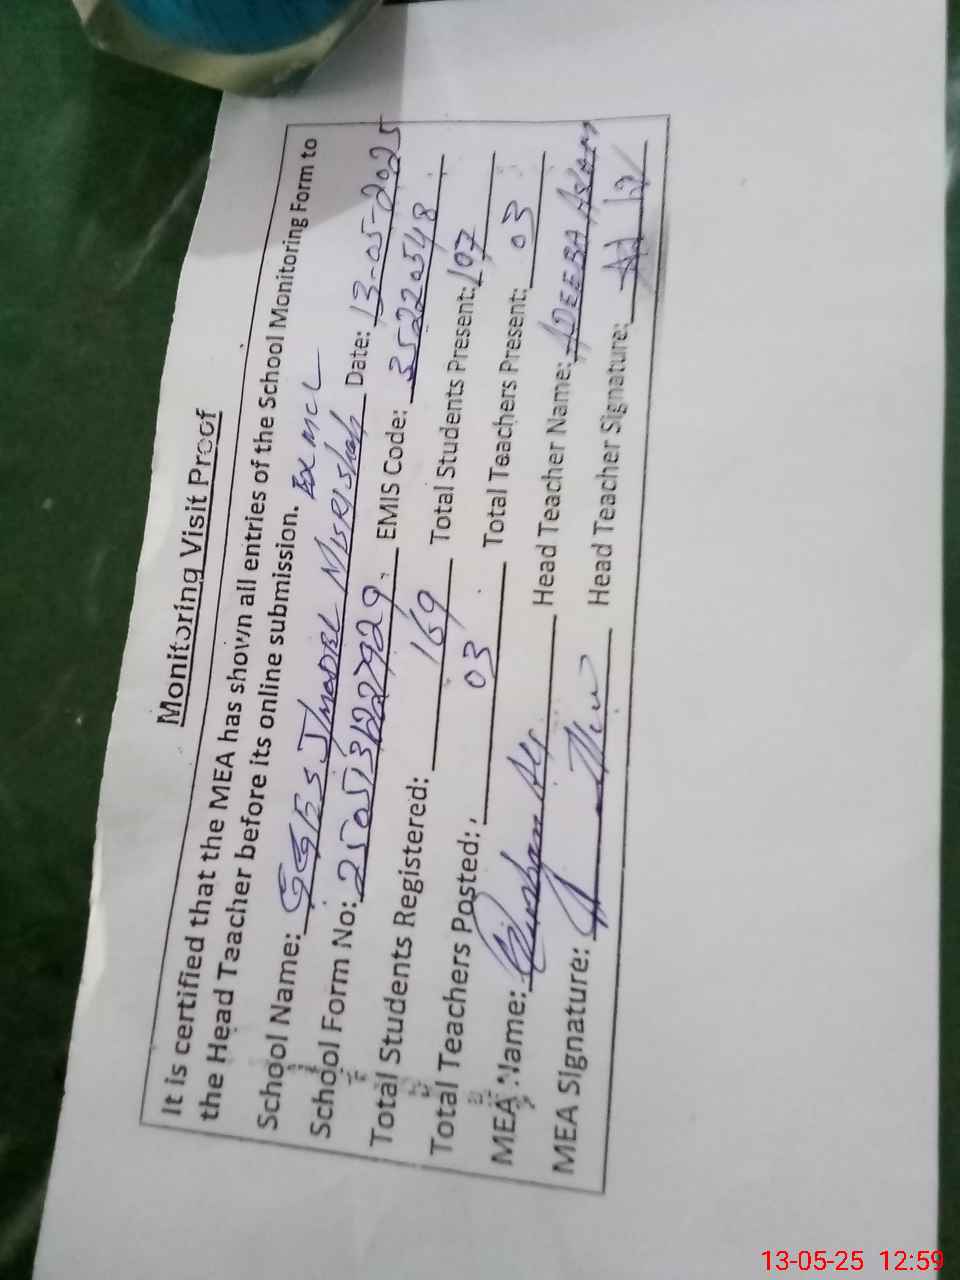 Monitoring Visit Proof
It is certified that the MEA has shown all entries of the School Monitoring Form to
the Head Teacher before its online submission.
School Name: GGES J/MODEL MISRI Shah Ex MCL Date: 13-05-2025
School Form No: EMIS Code: 35220548
Total Students Registered: 169 Total Students Present: 107
Total Teachers Posted: 03 Total Teachers Present: 03
MEA Name: Head Teacher Name: ADEEBA ASLAM
MEA Signature: Head Teacher Signature:
13-05-25 12:59